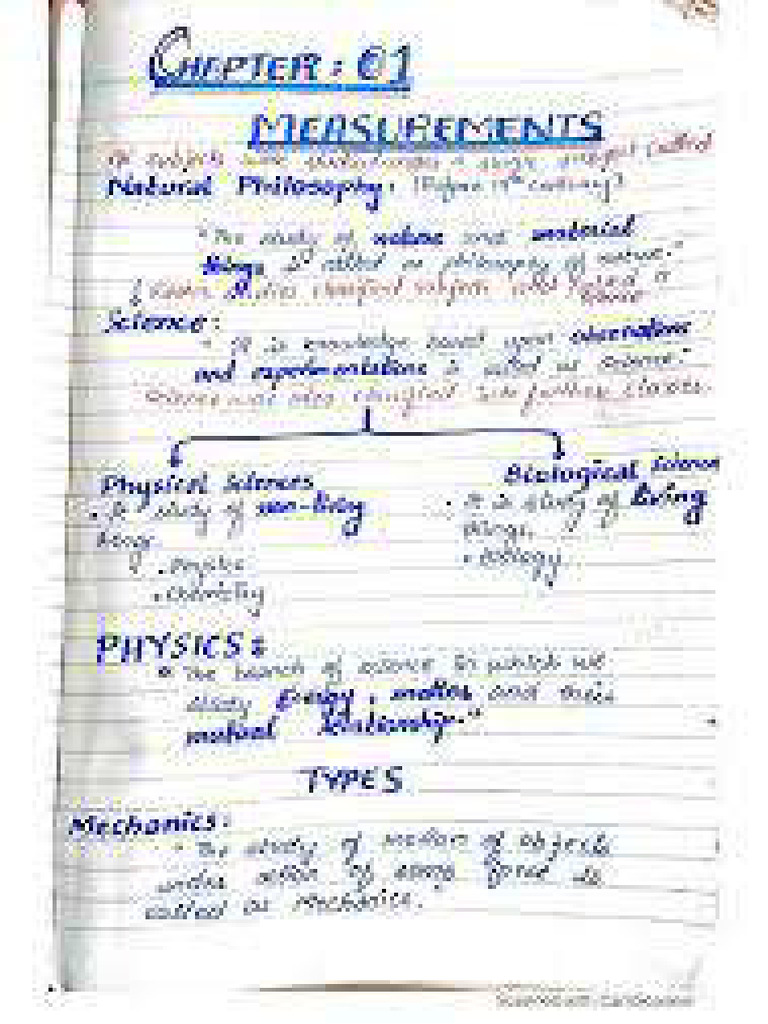 CHEPTER : 01
MEASUREMENTS
subjects were studied under a single subject called
Natural Philosophy: (Before 19th century)
"The study of nature and material
things is called as philosophy of nature."
classified subjects and named it
Science:
"It is knowledge based upon observations
and experimentations is called as science."
Science was also classified into further classes.
Physical Sciences
Biological Science
• It study of non-living
• It is study of living
things
things.
• Physics
• Biology
• Chemistry
PHYSICS:
"The branch of science in which we
study Energy, matter and their
mutual relationship."
TYPES
Mechanics:
"The study of motion of objects
under action of some force is
called as Mechanics."
Scanned with CamScanner